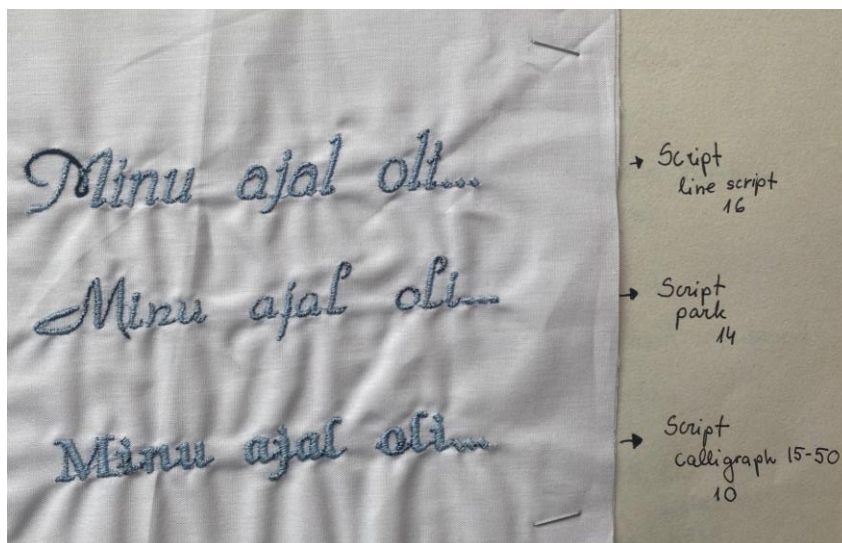 Minu ajal oli...
Script
line script
16
Minu ajal oli...
Script
park
14
Minu ajal oli...
Script
calligraph 15-50
10